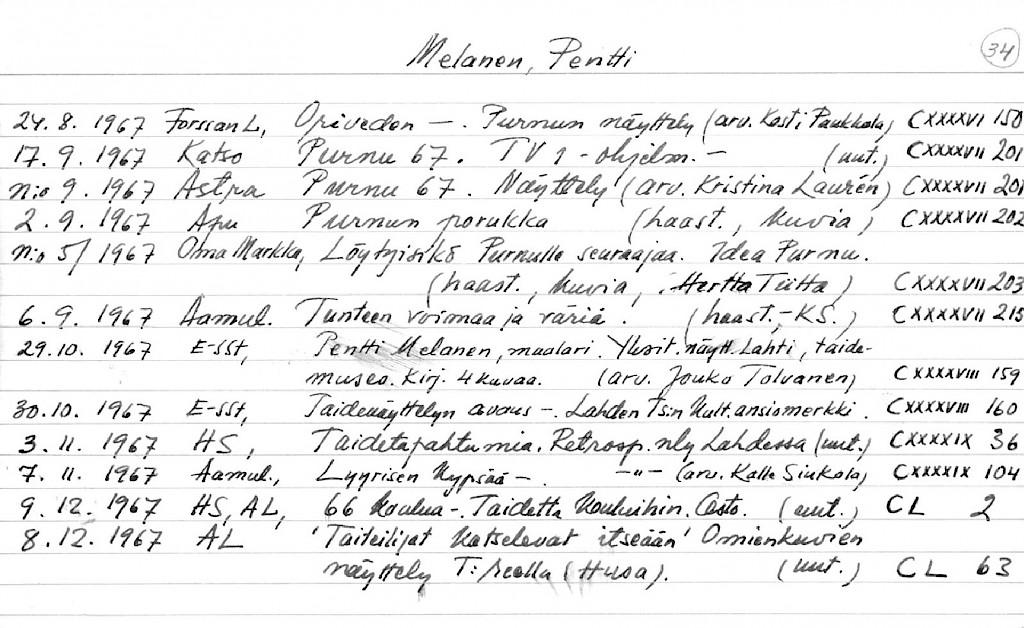 34
Melanen, Pentti
24. 8. 1967 Forssan L, Oriveden —. Purnun näyttely (arv. Kosti Paukkola) CXXXXVI 150
17. 9. 1967 Katso Purnu 67. TV 1 - ohjelm. — (uut.) CXXXXVII 201
n:o 9. 1967 Astra Purnu 67. Näyttely (arv. Kristina Laurén) CXXXXVII 201
2. 9. 1967 Apu Purnun porukka (haast., kuvia) CXXXXVII 202
n:o 5/ 1967 Oma Markka, Löytyisikö Purnulle seuraajaa. Idea Purnu.
(haast., kuvia, Hertta Tiitta) CXXXXVII 203
6. 9. 1967 Aamul. Tunteen voimaa ja väriä. (haast.,-KS.) CXXXXVII 215
29.10. 1967 E-SSt, Pentti Melanen, maalari. Yksit. näytt. Lahti, taide-
museo. Kirj. 4 kuvaa. (arv. Jouko Tolvanen) CXXXXVIII 159
30.10. 1967 E-SSt, Taidenäyttelyn avaus —. Lahden ts:n kult. ansiomerkki. CXXXXVIII 160
3. 11. 1967 HS, Taidetapahtumia. Retrosp. nly Lahdessa (uut.) CXXXXIX 36
7. 11. 1967 Aamul., Lyyrisen kypsää —. —"— (arv. Kalle Siukola) CXXXXIX 104
9. 12. 1967 HS, AL, 66 koulua -. Taidetta kouluihin. Osto. (uut.) CL 2
8. 12. 1967 AL 'Taiteilijat katselevat itseään' Omienkuvien
näyttely T:reella (Husa). (uut.) CL 63